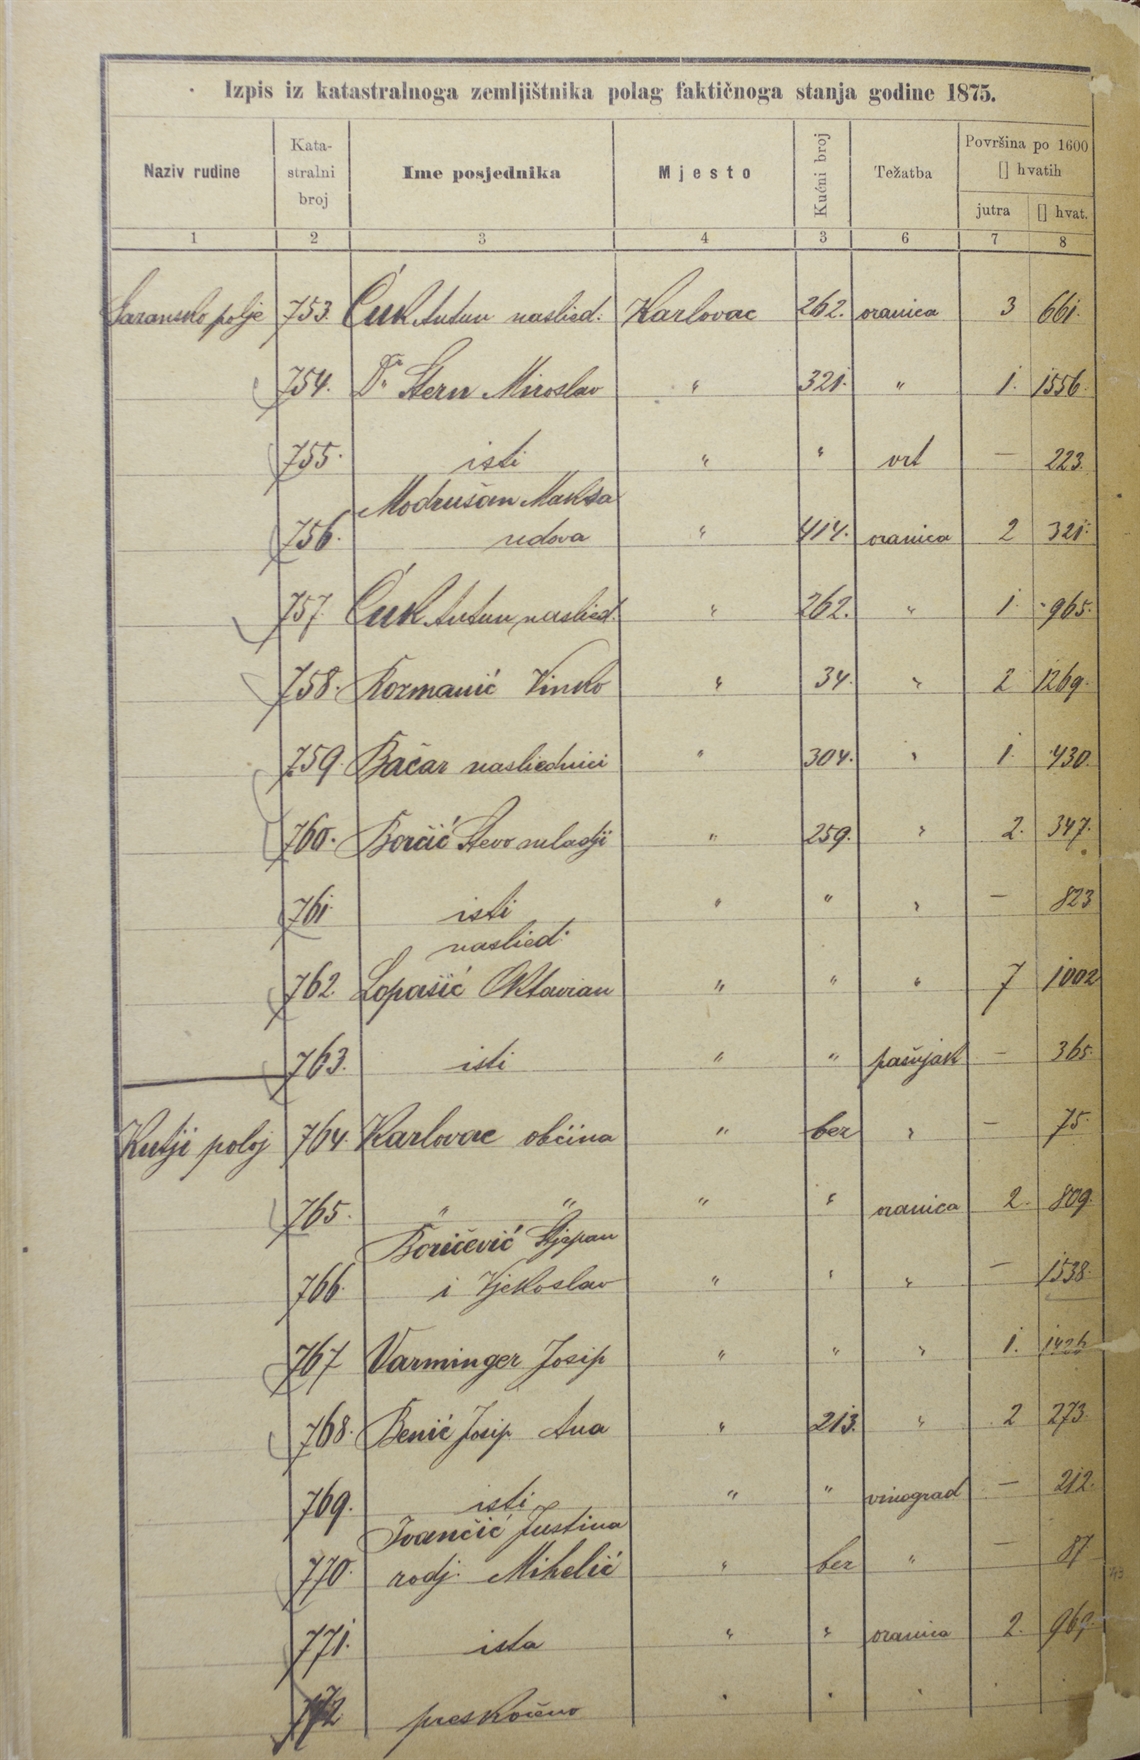 Izpis iz katastralnoga zemljištnika polag faktičnoga stanja godine 1875.
Naziv rudine Kata-stralni broj Ime posjednika Mjesto Kućni broj Težatba Površina po 1600 [] hvatih
jutra [] hvat.
1 2 3 4 3 6 7 8
polje 753. Ćuk Antun naslied. Karlovac 262. oranica 3 661.
754. Dr Stern Miroslav " 321. " 1. 1556.
755. isti " " vrt — 223.
Modrušan Maksa
756. udova " 414. oranica 2 321.
757. Ćuk Antun naslied. " 262. " 1. 965.
758. Kozmanić Vinko " 34. " 2 1269.
759. Bačar nasliednici " 304. " 1. 430.
760. Borčić Stevo mladji " 259. " 2. 347.
761. isti " " " — 823
naslied.
762. Lopašić Oktavian " " " 7 1002
763. isti " " pašnjak — 365.
Kutji poloj 764. Karlovac obćina " bez " — 75.
765. " " " " oranica 2. 809.
Boričević Stjepan
766. i Vjekoslav " " " — 1538.
767 Varminger Josip " " " 1. 1426
768. Benić Josip Ana " 213. " 2 273.
769. isti " " vinograd — 212.
Ivančić Justina
770. rodj. Mihelić " bez " — 87
771. ista " " oranica 2. 969.
772 preskočeno " " " " "